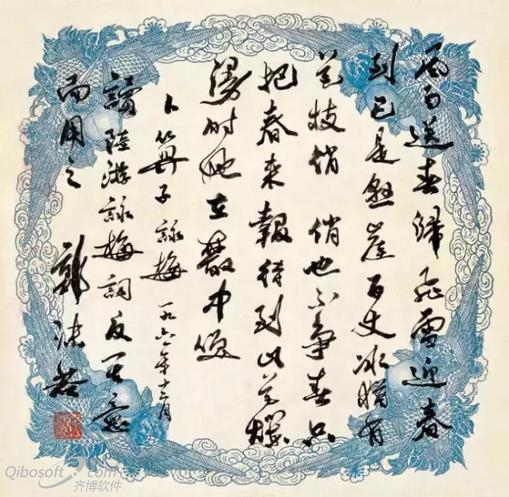 風雨送春歸飛雪迎春
到已是懸崖百丈冰猶有
花枝俏 俏也不爭春只
把春來報待到山花爛
漫時她在叢中笑
卜算子詠梅 一九六一年十二月
讀陸游詠梅詞反其意
而用之 郭沫若
Qibosoft.com
齐博软件